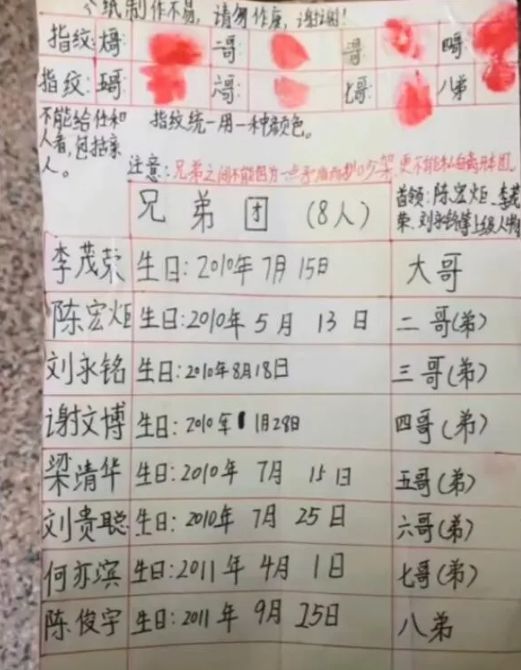 纸制作不易，请勿作废，谢谢！
指纹：大哥： 二哥： 三哥： 四哥：
指纹：五哥： 六哥： 七哥： 八弟：
不能给任何人看，包括亲人。
指纹统一用一种颜色。
注意：兄弟之间不能因为一点矛盾而吵架，更不能私自离开本团。
首领：陈宏炬、李茂荣、刘永铭等上级人物
兄弟团（8人）
李茂荣 生日：2010年7月15日 大哥
陈宏炬 生日：2010年5月13日 二哥（弟）
刘永铭 生日：2010年8月18日 三哥（弟）
谢文博 生日：2010年1月28日 四哥（弟）
梁清华 生日：2010年7月15日 五哥（弟）
刘贵聪 生日：2010年7月25日 六哥（弟）
何亦滨 生日：2011年4月1日 七哥（弟）
陈俊宇 生日：2011年9月25日 八弟